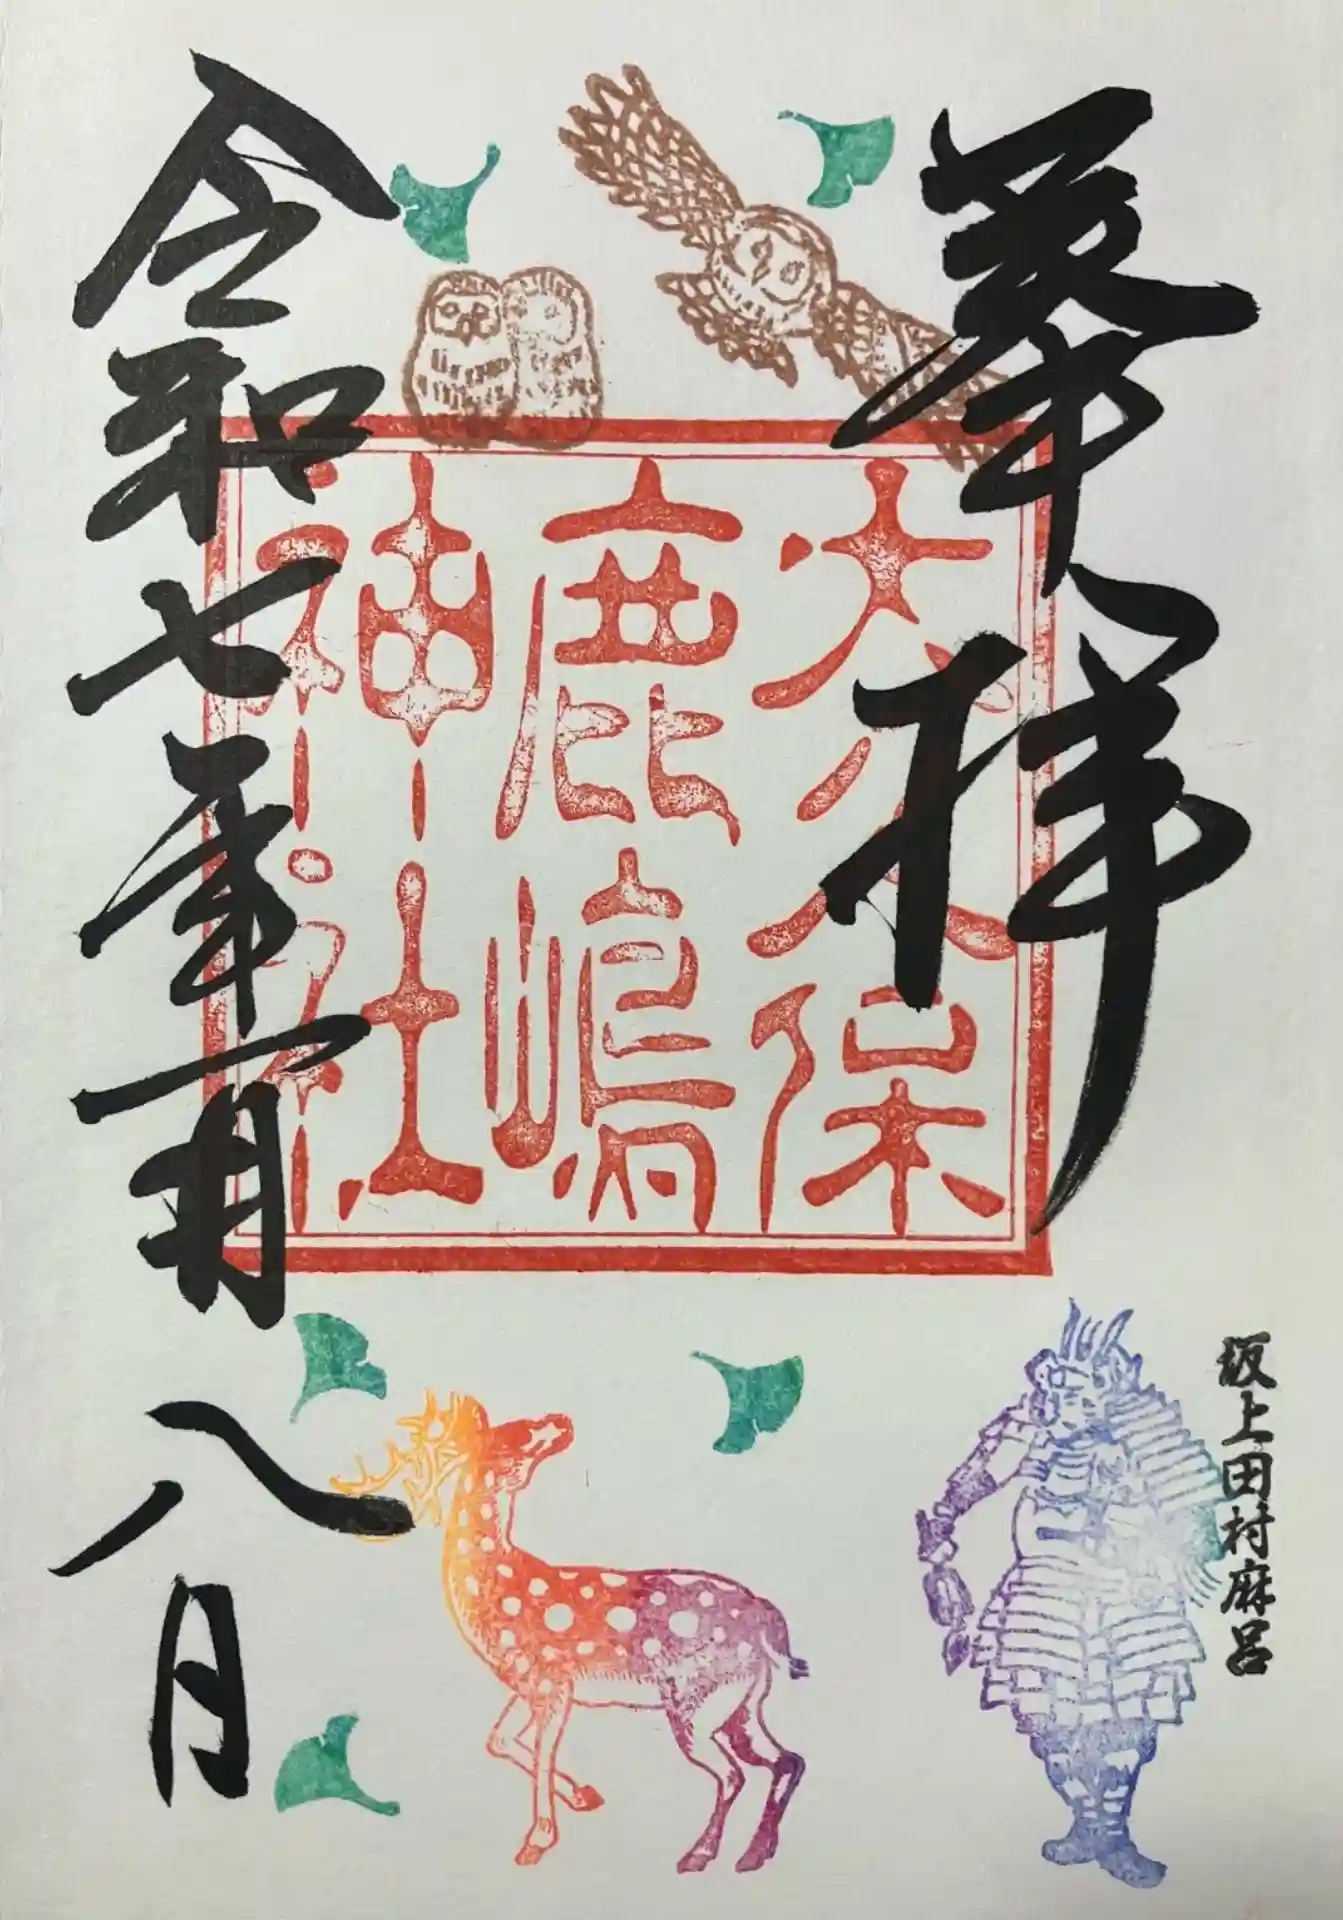 奉拝
坂上田村麻呂
大久保
鹿嶋
神社
令和七年一月八日